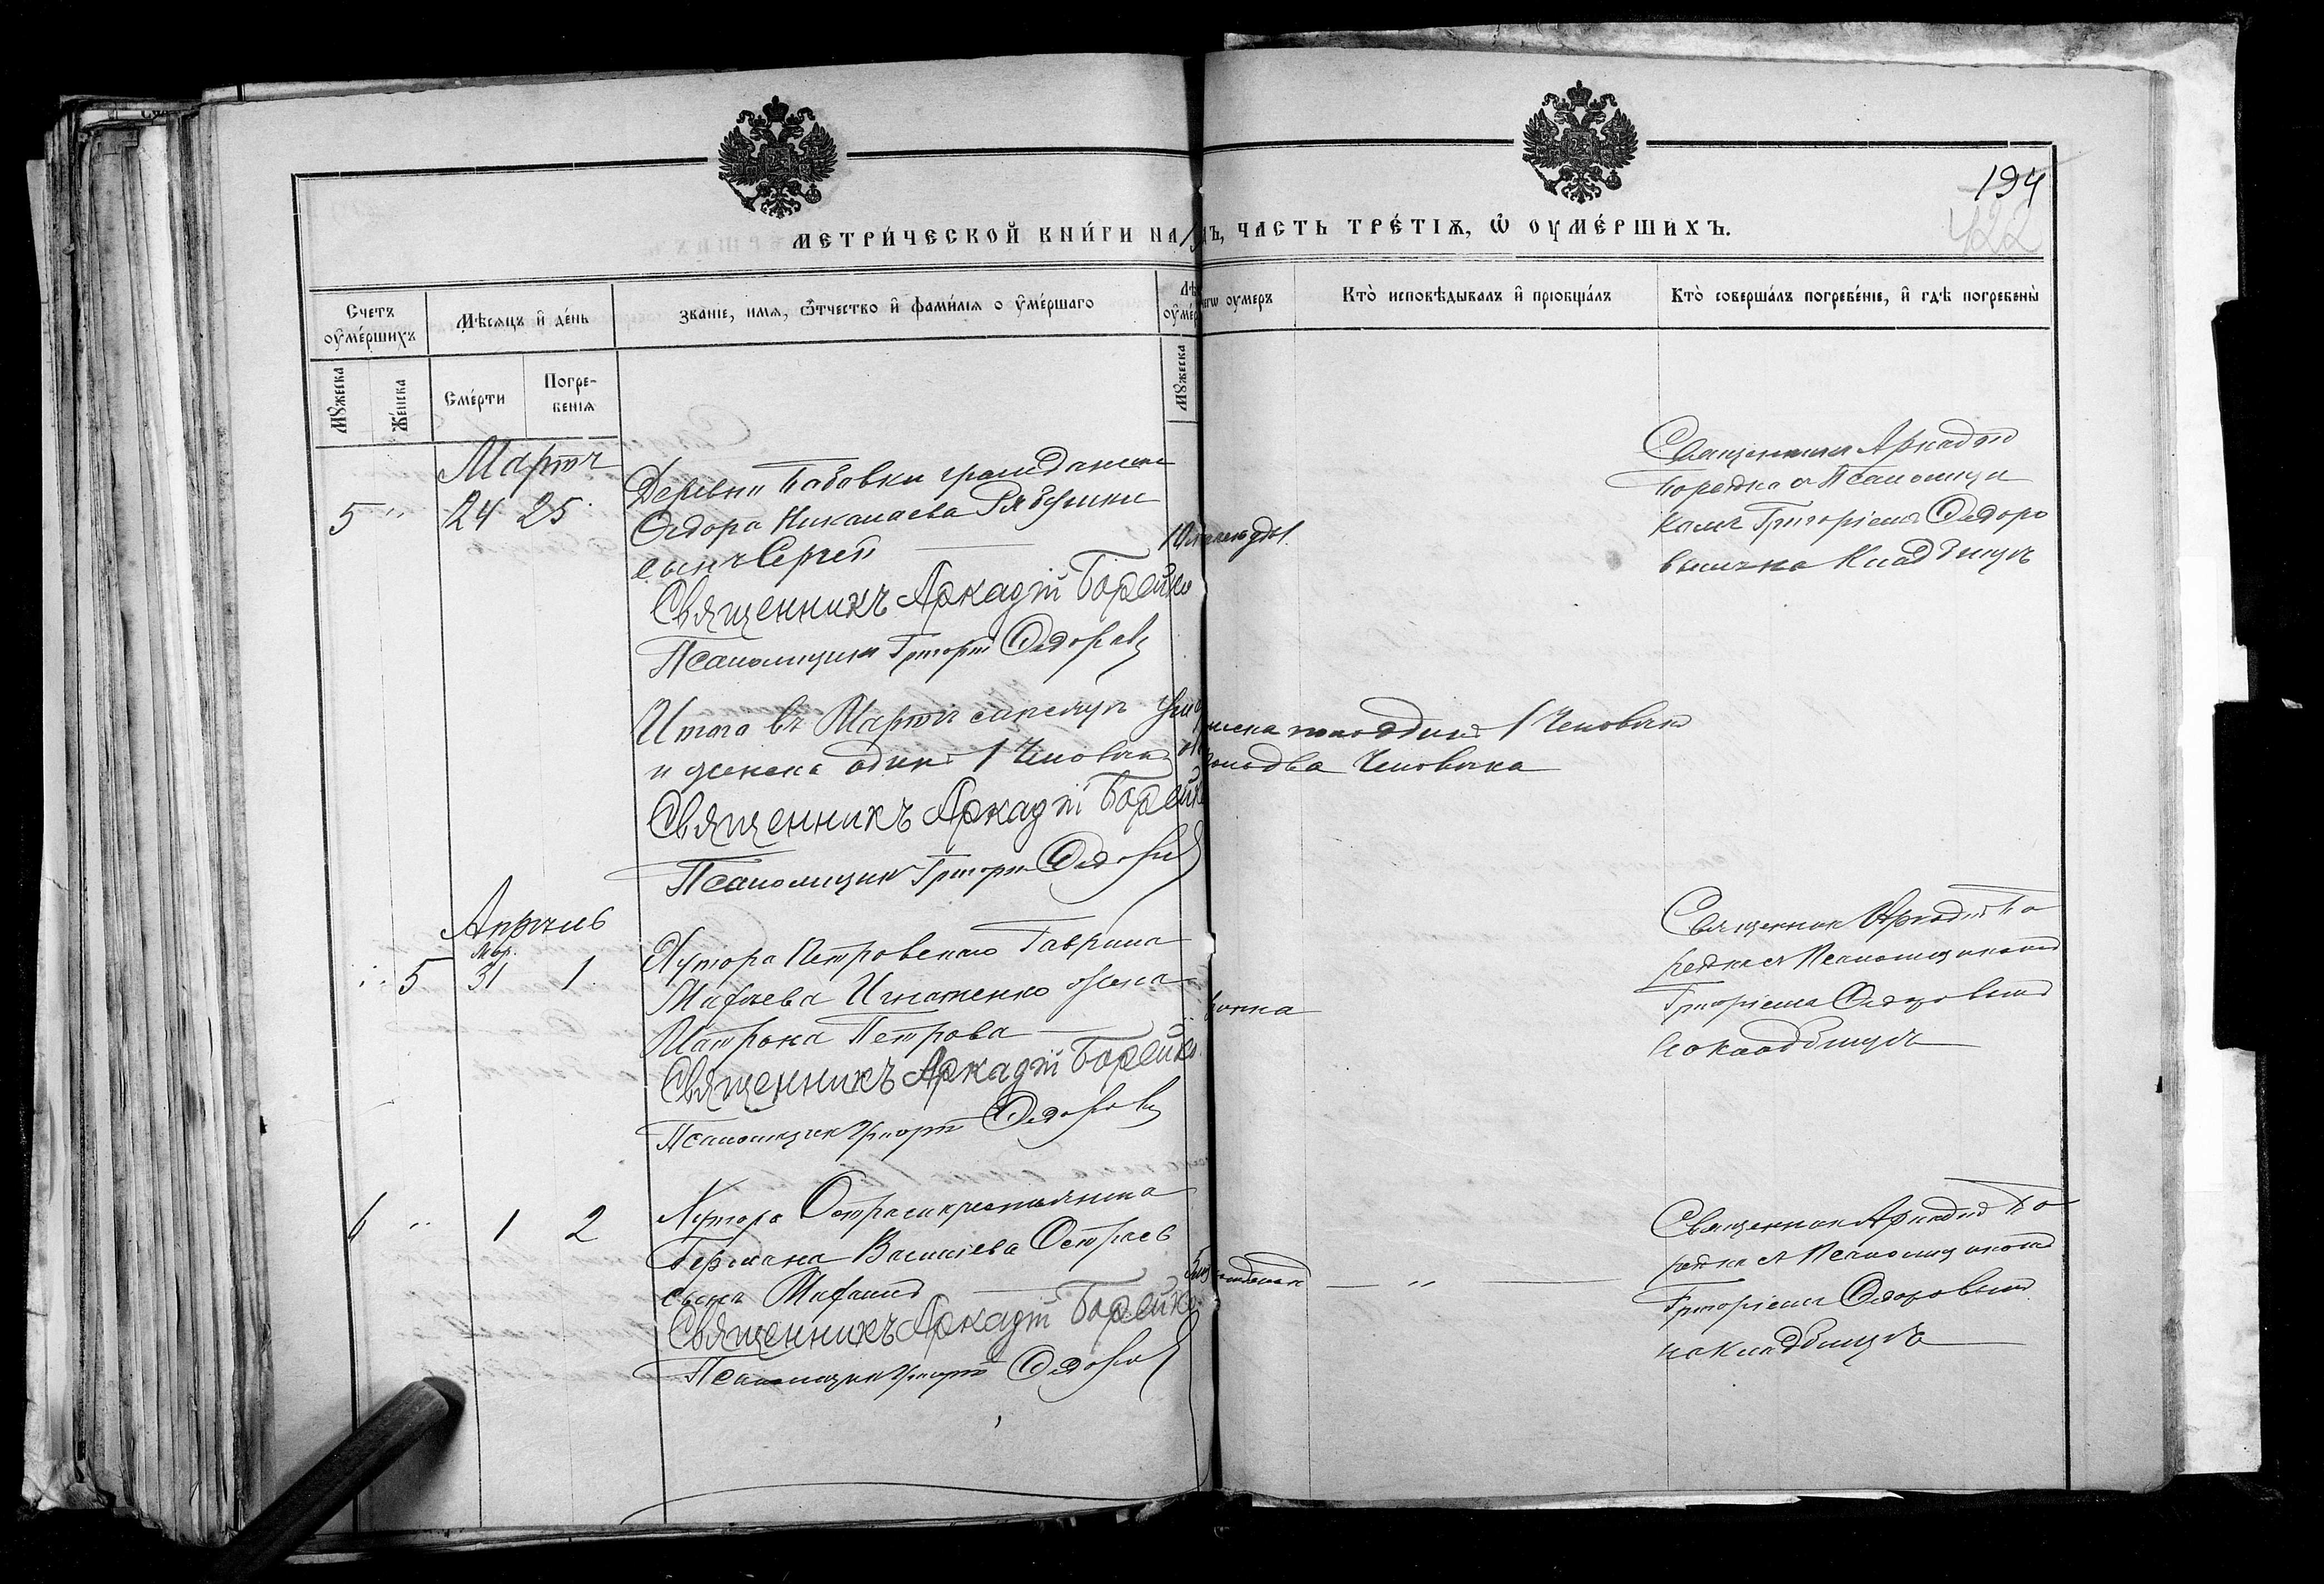 194
422
МЕТРИ́ЧЕСКОЙ КНИ́ГИ НА 19 ДЪ, ЧАСТЬ ТРЕ́ТІѦ, Ѡ ОУМЕ́РШИХЪ.
Счетъ оумéршихъ
Мѣсяцъ и де́нь
Званіе, имя, ѿчество и фами́лія оуме́ршаго
Лѣ оумер
чегѡ оумеръ
Кто̀ исповѣдывалъ и пріобща́лъ
Кто̀ соверша́лъ погребе́ніе, и гдѣ погребены̀
Мꙋжеска
Же́нска
Сме́рти
Погребенія
Мꙋжеска
Мартъ
5 " 24 25
Деревни Бабовки гражданина
Ѳедора Николаева Рябушки
сынъ Сергей
Священникъ Аркадій Борейко
Псаломщикъ Григорій Ѳедоровъ
Священникъ Аркадій
Борейко съ Псаломщи
комъ Григоріемъ Ѳедоро
вымъ на Кладбищѣ
Итого въ Мартѣ мѣсяцѣ
пола один 1 Человѣкъ
и женска один 1 Человѣкъ
пола два Человѣка
Священникъ Аркадій Борейко
Псаломщикъ Григорій Ѳедоровъ
Апрѣль
Мар.
" 5 31 1
Хутора Петровскаго Гавриила
Матѳѣева Игнатенко жена
Матрона Петрова
Священникъ Аркадій Борейко
Псаломщикъ Григорій Ѳедоровъ
Священник Аркадій Бо
рейко съ Псаломщикомъ
Григоріемъ Ѳедоровымъ
на кладбищѣ
6 " 1 2
Хутора Остраси крестьянина
Германа Василіева Острась
сынъ Михаилъ
Священникъ Аркадій Борейко
Псаломщикъ Григорій Ѳедоровъ
— " —
Священник Аркадій Бо
рейко съ Псаломщикомъ
Григоріемъ Ѳедоровымъ
на кладбищѣ